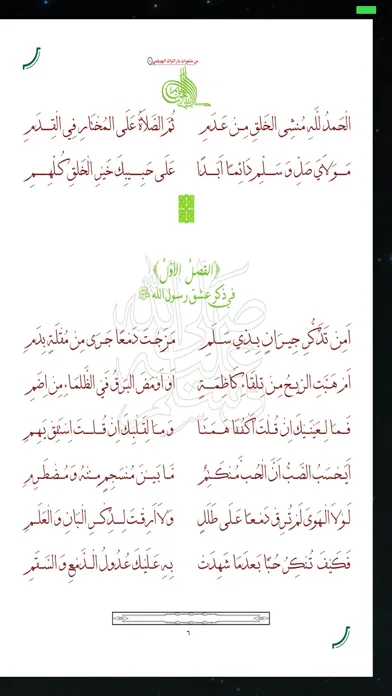 من منشورات دار التراث الجنيدي
الْحَمْدُ لِلّٰهِ مُنْشِى الْخَلْقِ مِنْ عَدَمِ ثُمَّ الصَّلَاةُ عَلَى الْمُخْتَارِ فِي الْقِدَمِ
مَوْلَايَ صَلِّ وَسَلِّمْ دَائِمًا اَبَدًا عَلَى حَبِيبِكَ خَيْرِ الْخَلْقِ كُلِّهِمِ
﴿الفصل الأول﴾
في ذكر عشق رسول الله ﷺ
اَمِنْ تَذَكُّرِ جِيرَانٍ بِذِي سَلَمِ مَزَجْتَ دَمْعًا جَرَى مِنْ مُقْلَةٍ بِدَمِ
اَمْ هَبَّتِ الرِّيحُ مِنْ تِلْقَاءِ كَاظِمَةٍ اَوْ اَوْمَضَ الْبَرْقُ فِي الظَّلْمَاءِ مِنْ اِضَمِ
فَمَا لِعَيْنَيْكَ اِنْ قُلْتَ اكْفُفَا هَمَتَا وَمَا لِقَلْبِكَ اِنْ قُلْتَ اسْتَفِقْ يَهِمِ
اَيَحْسَبُ الصَّبُّ اَنَّ الْحُبَّ مُنْكَتِمٌ مَا بَيْنَ مُنْسَجِمٍ مِنْهُ وَمُضْطَرِمِ
لَوْلَا الْهَوَى لَمْ تُرِقْ دَمْعًا عَلَى طَلَلٍ وَلَا اَرِقْتَ لِذِكْرِ الْبَانِ وَالْعَلَمِ
فَكَيْفَ تُنْكِرُ حُبًّا بَعْدَمَا شَهِدَتْ بِهِ عَلَيْكَ عُدُولُ الدَّمْعِ وَالسَّقَمِ
٦